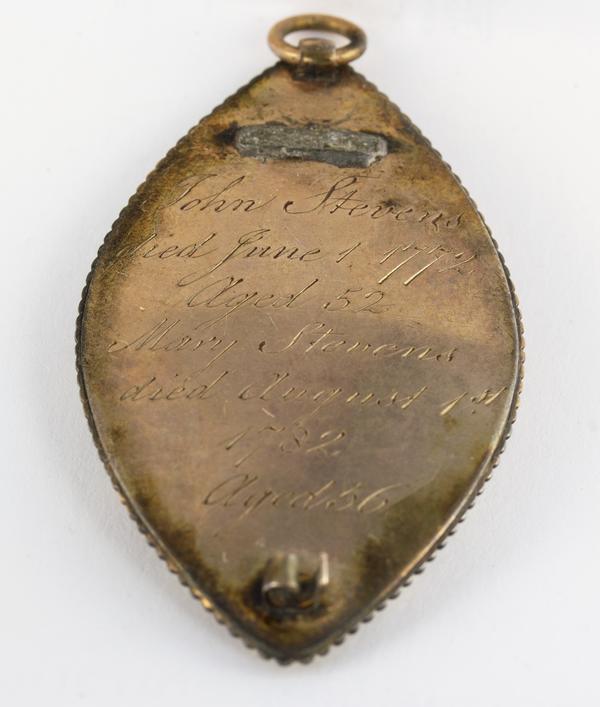 John Stevens
died June 1 1772
Aged 52
Mary Stevens
died August 1st
1782
Aged 56